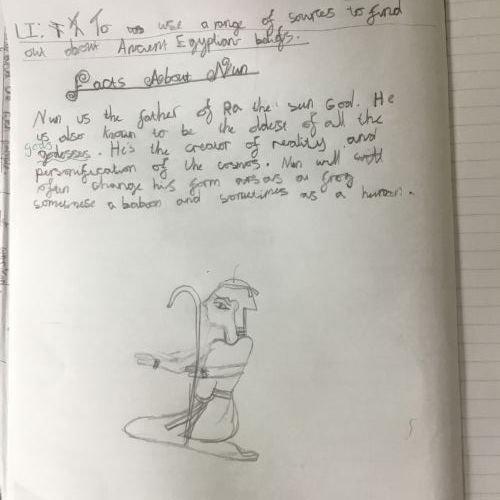 LI: To use a range of sources to find
out about Ancient Egyptian beliefs.
Facts About Nun
Nun us the father of Ra the sun God. He
us also known to be the oldest of all the
gods
godesses. He's the creator of reality and
personification of the cosmos. Nun will
ofan change his form as a frog
somemese a baboon and sometimes as a human.